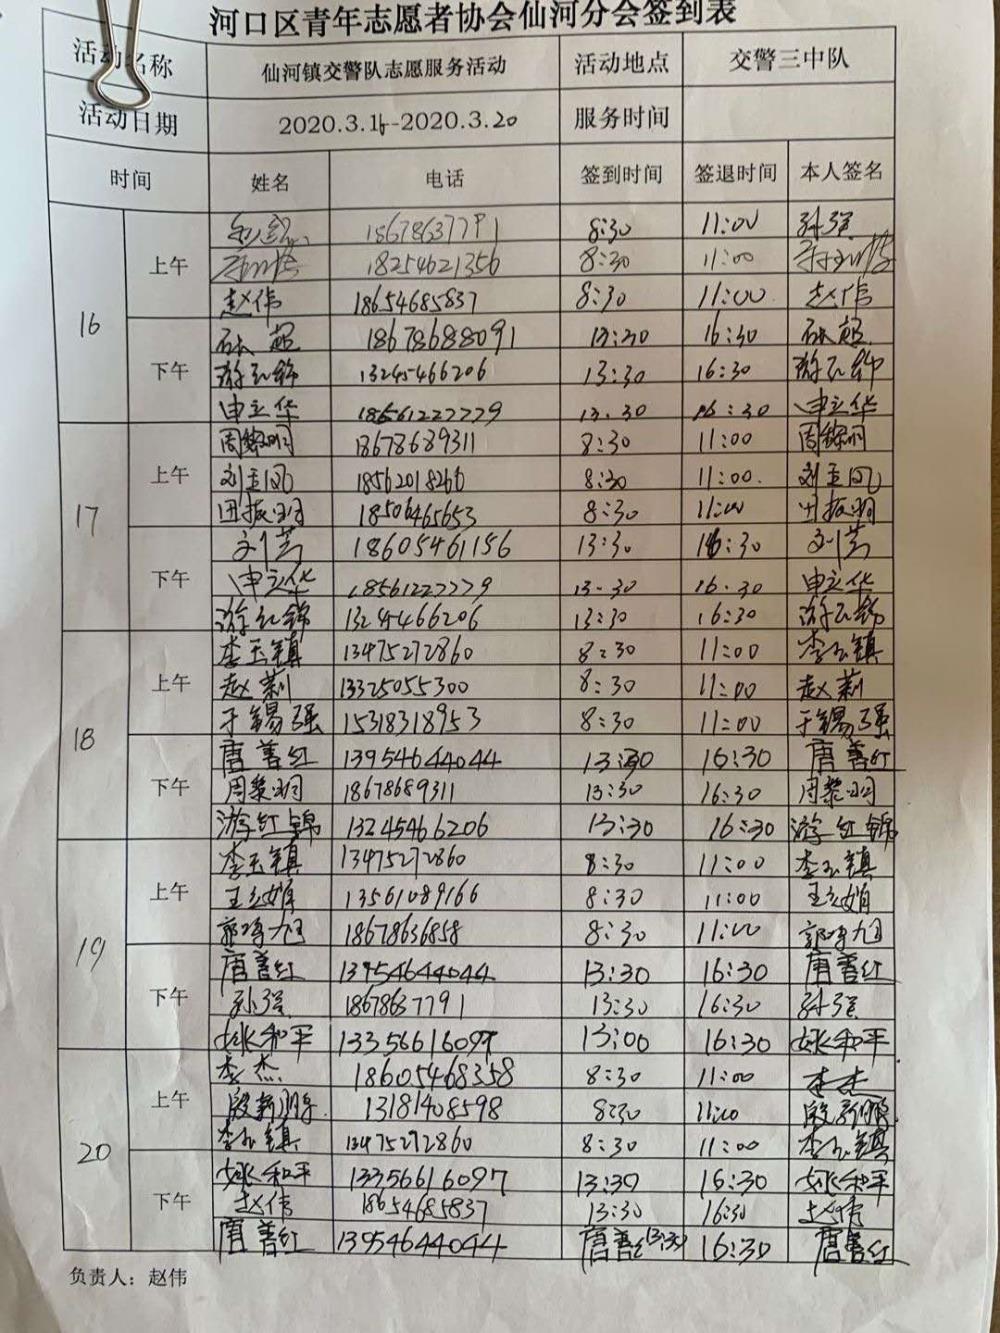 河口区青年志愿者协会仙河分会签到表
活动名称 仙河镇交警队志愿服务活动 活动地点 交警三中队
活动日期 2020.3.16-2020.3.20 服务时间
时间 姓名 电话 签到时间 签退时间 本人签名
16 上午 孙强 18678637791 8:30 11:00 孙强
18254621356 8:30 11:00
赵伟 18654685837 8:30 11:00 赵伟
下午 石超 18678688091 13:30 16:30 石超
游红锦 13245466206 13:30 16:30 游红锦
申立华 18561227779 13:30 16:30 申立华
17 上午 周黎明 18678689311 8:30 11:00 周黎明
刘玉凤 18562018266 8:30 11:00 刘玉凤
田振羽 18506465653 8:30 11:00 田振羽
下午 刘芸 18605461156 13:30 16:30 刘芸
申立华 18561227779 13:30 16:30 申立华
游红锦 13245466206 13:30 16:30 游红锦
18 上午 李玉镇 13475272860 8:30 11:00 李玉镇
赵莉 13325055300 8:30 11:00 赵莉
于锡强 15318318953 8:30 11:00 于锡强
下午 唐善红 13954644044 13:30 16:30 唐善红
周黎明 18678689311 13:30 16:30 周黎明
游红锦 13245466206 13:30 16:30 游红锦
19 上午 李玉镇 13475272860 8:30 11:00 李玉镇
王立娟 13561089166 8:30 11:00 王立娟
18678636858 8:30 11:00
下午 唐善红 13954644044 13:30 16:30 唐善红
孙强 18678637791 13:30 16:30 孙强
姚和平 13356616097 13:00 16:30 姚和平
20 上午 李杰 18605468358 8:30 11:00 李杰
殷新鹏 13181408598 8:30 11:00 殷新鹏
李玉镇 13475272860 8:30 11:00 李玉镇
下午 姚和平 13356616097 13:30 16:30 姚和平
赵伟 18654685837 13:30 16:30 赵伟
唐善红 13954644044 唐善红 13:30 16:30 唐善红
负责人：赵伟